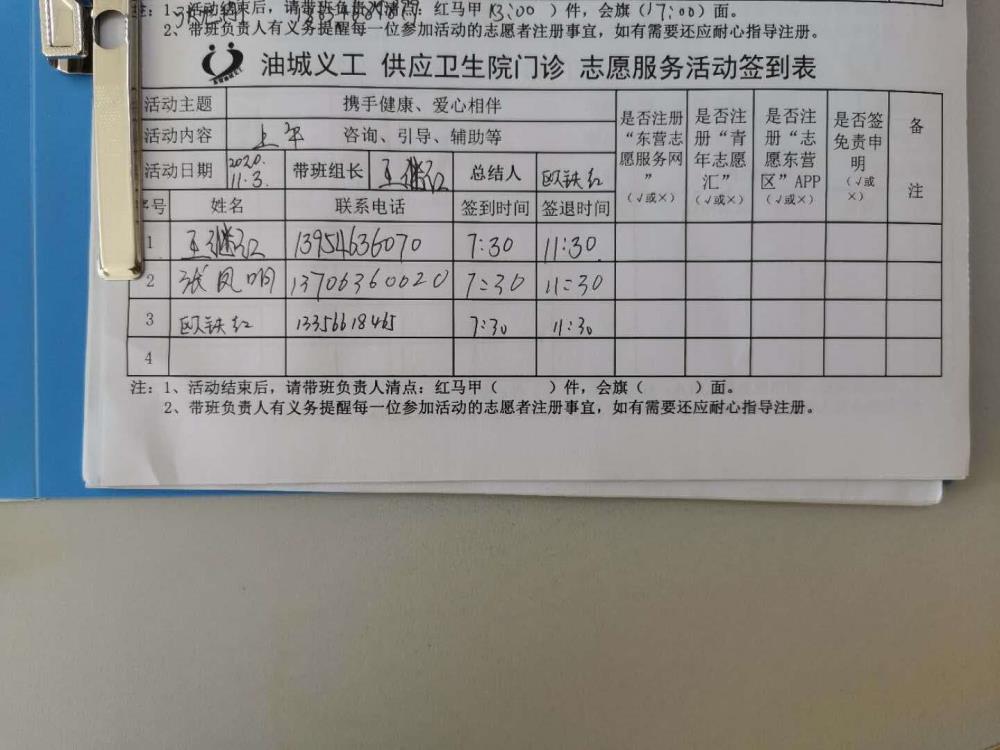 注：1、活动结束后，请带班负责人清点：红马甲（13:00 ）件，会旗（17:00）面。
2、带班负责人有义务提醒每一位参加活动的志愿者注册事宜，如有需要还应耐心指导注册。
油城义工 供应卫生院门诊 志愿服务活动签到表
活动主题 携手健康、爱心相伴 是否注册“东营志愿服务网”（√或×） 是否注册“青年志愿汇”（√或×） 是否注册“志愿东营区”APP（√或×） 是否签免责申明（√或×） 备注
活动内容 上午 咨询、引导、辅助等
活动日期 2020.11.3. 带班组长 王继红 总结人 欧铁红
序号 姓名 联系电话 签到时间 签退时间
1 王继红 13954636070 7:30 11:30
2 张凤鸣 13706360020 7:30 11:30
3 欧铁红 13356618465 7:30 11:30
4
注：1、活动结束后，请带班负责人清点：红马甲（ ）件，会旗（ ）面。
2、带班负责人有义务提醒每一位参加活动的志愿者注册事宜，如有需要还应耐心指导注册。